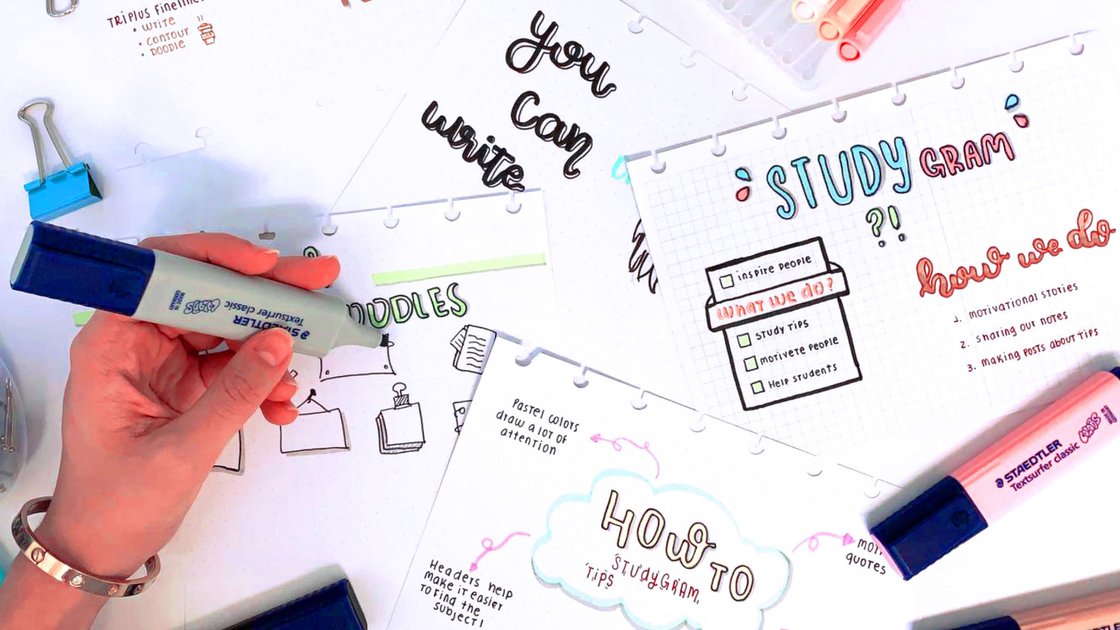 TRIPLUS FINELINER
• WRITE
• CONTOUR
• DOODLE
you
can
write
STUDY GRAM
?!
INSPIRE PEOPLE
WHAT WE DO?
STUDY TIPS
MOTIVETE PEOPLE
HELP STUDENTS
how we do
1. MOTIVATIONAL STORIES
2. SHARING OUR NOTES
3. MAKING POSTS ABOUT TIPS
STAEDTLER
Textsurfer classic
MADE IN
GERMANY
DOODLES
PASTEL COLORS
DRAW A LOT OF
ATTENTION
HOW TO
STUDYGRAM
TIPS
HEADERS HELP
MAKE IT EASIER
TO FIND THE
SUBJECT!
QUOTES
STAEDTLER
Textsurfer classic
STAEDTLER